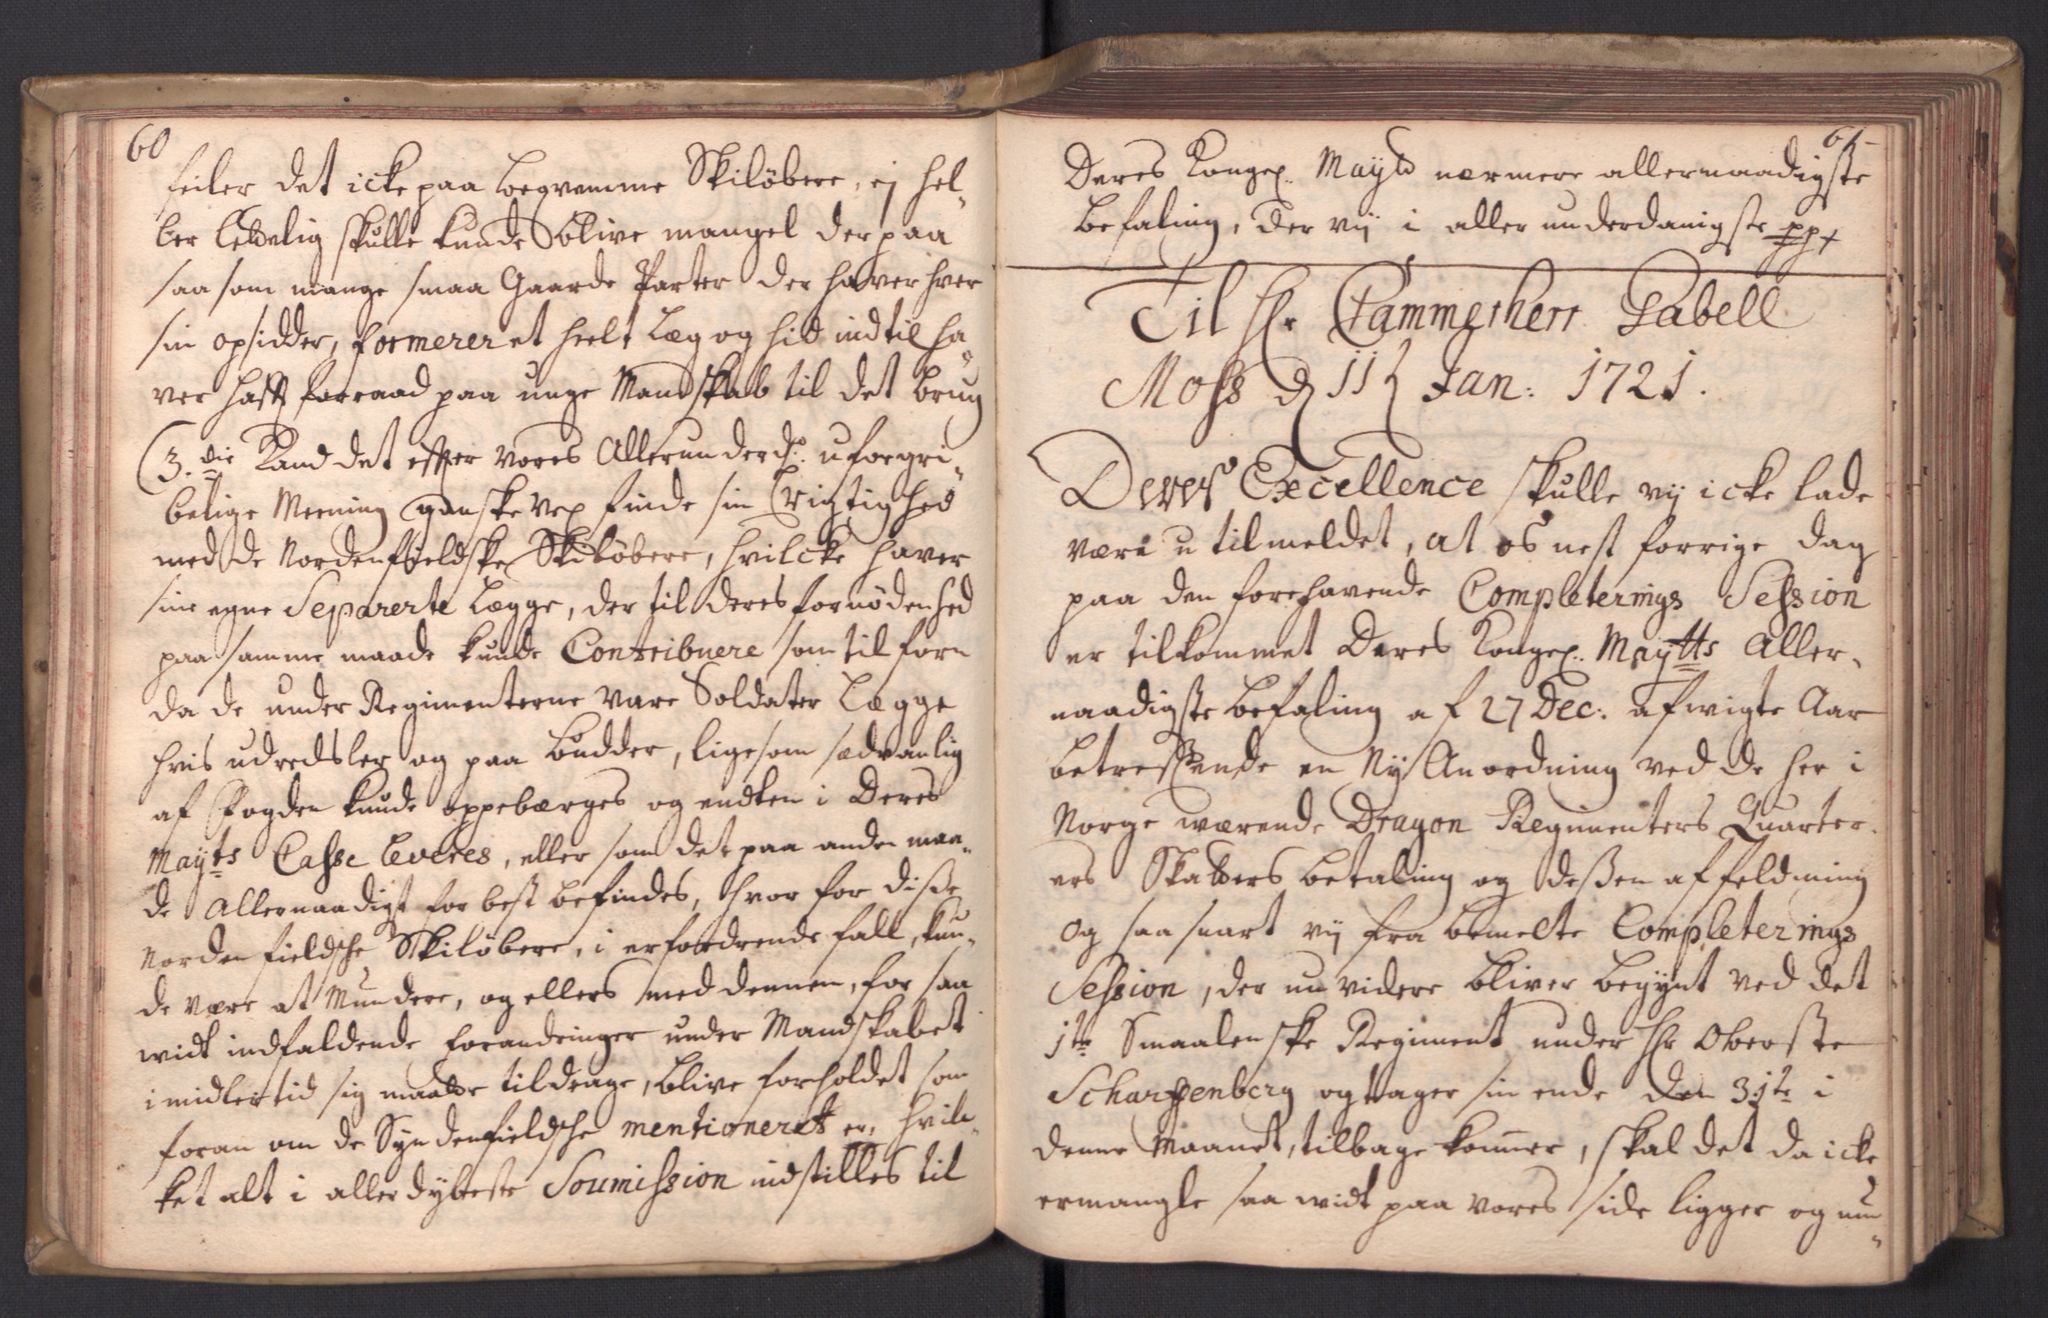 60
feiler det icke paa beqvemme Skilöbere, ej hel-
ler lettelig skulle kunde blive mangel derpaa
saa som mange smaa Gaarde Parter der haver hver
sin opsidder, formerer et heelt Læg og hid indtil ha-
ver hafft forraad paa unge Mandskab til det brug
(3.die Kand det effter vores Allerunderd: uforgri-
belige Meening ganske vel finde sin Rigtighed
med de Nordenfieldske Skilöbere, hvilcke haver
sine egne Separerte Lægge, der til deres fornödenhed
paa samme maade kunde Contribuere som tilforn
da de under Regimenterne vare Soldater Lægge
hvis udredsler og paa budder, ligesom sædvanlig
af Fogden kunde oppebærges og endten i Deres
Mayts Casse leveres, eller som det paa anden maa-
de Allernaadigst for best befindes, hvor for disse
Nordenfieldsche Skilöbere, i erfordrende fall, kun-
de være at Mundere, og ellers med dennem, for saa
widt indfaldende forandringer under Mandskabet
imidlertid sig maatte tildrage, blive forholdet som
foran om de Syndenfieldsche mentioneret er, hvil-
ket alt i allerdybeste Soumission indstilles til
61
Deres Kongel. Mayts nærmere allernaadigste
befaling, der vij i aller underdanigste pp
Til Hr Cammerherr Gabell
Moss d 11 Jan: 1721.
Deres Excellence skulle vij icke lade
være u tilmeldet, at os nest forrige dag
paa den forehavende Completerings Session
er tilkommet Deres Kongel. Maytts Aller-
naadigste befaling af 27 Dec: afwigte Aar
betreffende en Ny Anordning ved de her i
Norge wærende Dragon Regimenters Quarter-
ers Skatters betaling og dessen affeldning
og saa snart vij fra bemelte Completerings
Session, der nu videre bliver begynt ved det
1te Smaalenske Regiment under Hr Oberste
Scharffenberg og tager sin ende den 31te i
denne Maanet, tilbage kommer, skal det da icke
ermangle saa widt paa vores side ligger og mu-